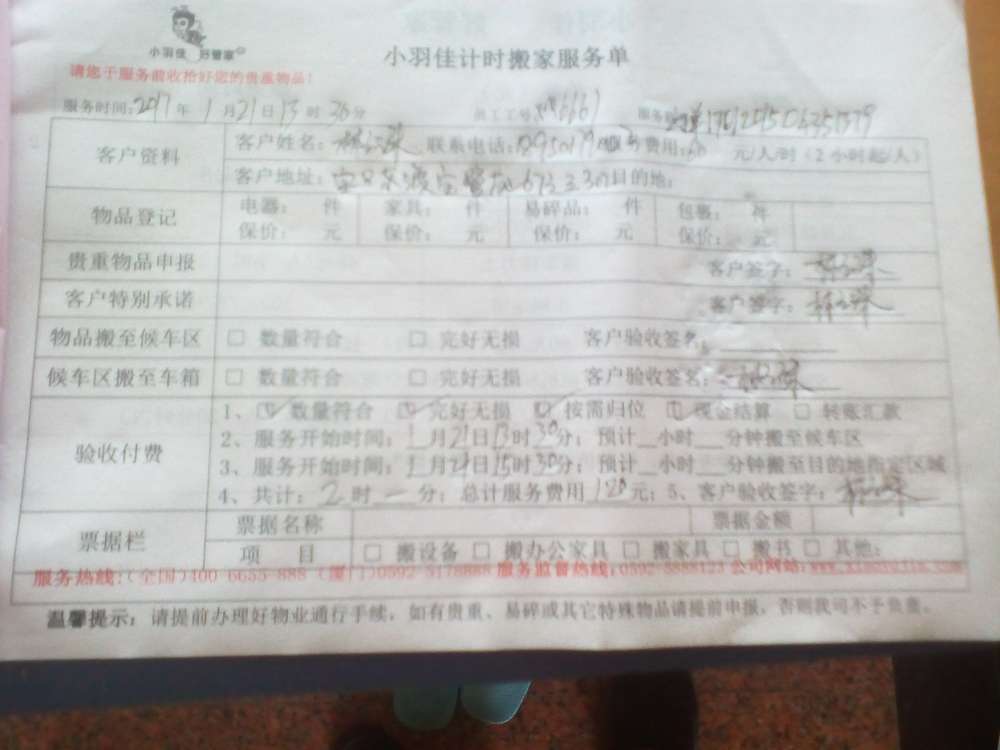 小羽佳 好管家
小羽佳计时搬家服务单
请您于服务前收拾好您的贵重物品！
服务时间：2017年1月21日13时30分 员工工号 6661 服务
客户资料 客户姓名： 联系电话： 费用：60元/人/时（2小时起/人）
客户地址： 目的地：
物品登记 电器： 件 家具： 件 易碎品： 件 包裹： 件
保价： 元 保价： 元 保价： 元 保价： 元
贵重物品申报 客户签字：
客户特别承诺 客户签字：
物品搬至候车区 □ 数量符合 □ 完好无损 客户验收签名：
候车区搬至车箱 □ 数量符合 □ 完好无损 客户验收签名：
验收付费 1、☑ 数量符合 ☑ 完好无损 ☑ 按需归位 ☑ 现金结算 □ 转账汇款
2、服务开始时间：1月21日13时30分；预计__小时___分钟搬至候车区
3、服务开始时间：1月21日15时30分；预计__小时___分钟搬至目的地指定区域
4、共计：2时一分；总计服务费用120元；5、客户验收签字：
票据栏 票据名称 票据金额
项 目 □ 搬设备 □ 搬办公家具 □ 搬家具 □ 搬书 □ 其他：
服务热线：(全国)400 6655-888 (厦门)0592-5178888 服务监督热线：0592-5888123 公司网站：
温馨提示：请提前办理好物业通行手续，如有贵重、易碎或其它特殊物品请提前申报，否则我司不予负责。